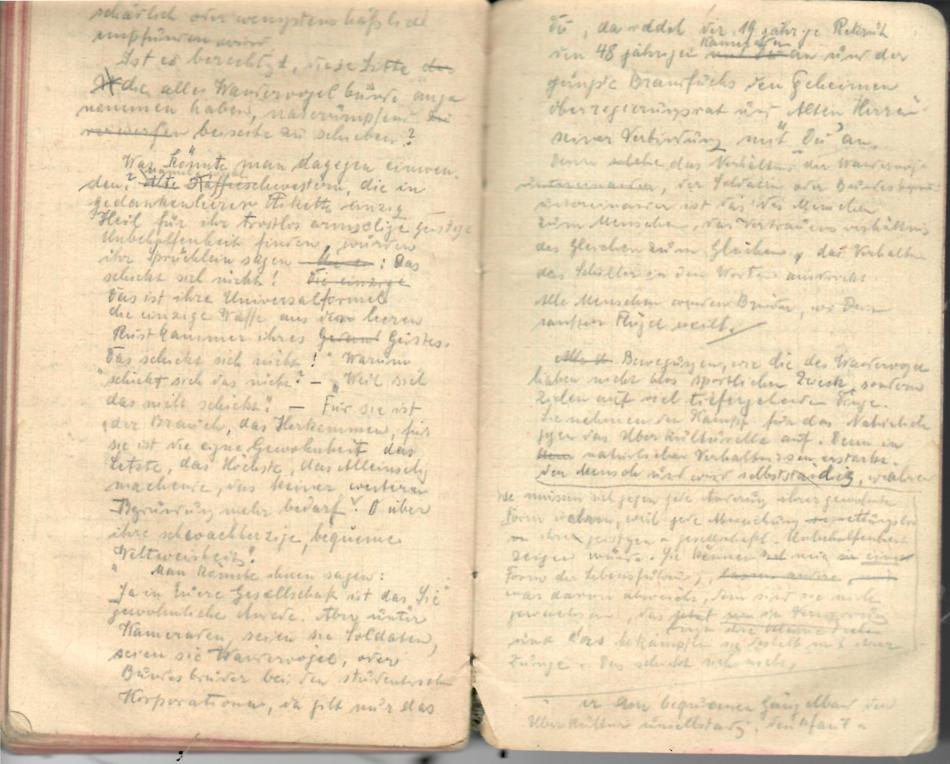 schädlich oder wenigstens häßlich
empfunden wird
Ist es berechtigt, diese Sitte das
die alle Wandervogel bünde ange
nommen haben, naserümpfend zu
verwerfen beiseite zu schieben?
Was könnte man dagegen einwen-
den? Alte Kaffeeschwestern, die in
gedankenleerer Etikette einzig
Heil für ihr trostlos armselige geistige
Unbeholfenheit finden, würden
ihr Sprüchlein sagen : Das
schickt sich nicht! Die einzige
Das ist ihre Universalformel
die einzige Waffe aus der leeren
Rüstkammer ihres Geistes.
Das schickt sich nicht!" Warum
"schickt sich das nicht? - "Weil sich
das nicht schickt". - Für sie ist
der Brauch, das Herkommen, für
sie ist die eigne Gewohnheit das
Letzte, das Höchste, das Alleinselig
machende, das keiner weiteren
Begründung mehr bedarf! O über
ihre schwachherzige, bequeme
Weltweisheit!
Man könnte ihnen sagen:
Ja in Eurer Gesellschaft ist das "Sie"
gewöhnliche Anrede. Aber unter
Kameraden, seien sie Soldaten,
seien sie Wandervogel, oder
Bundesbrüder bei den studentischen
Korporationen, da gilt nur das
Du, da redet der 19 jährige Rekrut
den 48 jährigen Kameraden an und der
jüngste Brandfuchs den Geheimen
Oberregierungsrat und Alten Herren
seiner Verbindung mit "Du" an.
Denn solche das Verhältnis der Wandervögel
untereinander, der Soldaten oder Bundesbrüder
untereinander ist das des Menschen
zum Menschen, das Vertrauensverhältnis
des Gleichen zum Gleichen, das Verhältnis
das Schiller in den Worten ausdrückt:
Alle Menschen werden Brüder, wo Dein
sanfter Flügel weilt.
Bewegungen, wie die des Wandervogel
haben nicht blos sportlichen Zweck, sondern
zielen auf viel tiefergehende Dinge.
Sie nehmen den Kampf für das Natürliche
gegen das Überkulturelle auf. Denn in
natürlichen Verhältnissen erstarkt
der Mensch und wird selbstständig, während
sie müssen sich gegen jede Änderung ihrer gewohnten
Form wehren, weil jede Abweichung
ihre geistigen u gesellschaftl. Unbeholfenheit
zeigen würde. Sie kennen nur eine
Form der Lebensführung,
was davon abweicht, dem sind sie nicht
gewachsen, das
und bekämpfen sie mit ihrer
Zunge: Das schickt sich nicht,
er am bequemen Gängelband der
Überkultur unselbständig,